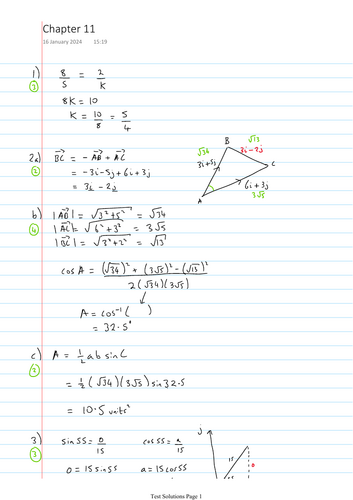 Chapter 11
16 January 2024 15:19
1) 8/5 = 2/K
③
8K = 10
K = 10/8 = 5/4
2a) BC = -AB + AC
② = -3i - 5j + 6i + 3j
= 3i - 2j
√34 B √13
3i-2j
3i+5j C
6i + 3j
A 3√5
b) |AB| = √(3²+5²) = √34
④ |AC| = √(6²+3²) = 3√5
|BC| = √(3²+2²) = √13
cos A = ((√34)² + (3√5)² - (√13)²) / 2(√34)(3√5)
A = cos⁻¹( )
= 32.5°
c) A = ½ ab sin C
= ½ (√34)(3√5) sin 32.5
= 10.5 units²
3) sin 55 = o/15 cos 55 = a/15 j
③ 15 o
o = 15 sin 55 a = 15 cos 55
15
Test Solutions Page 1